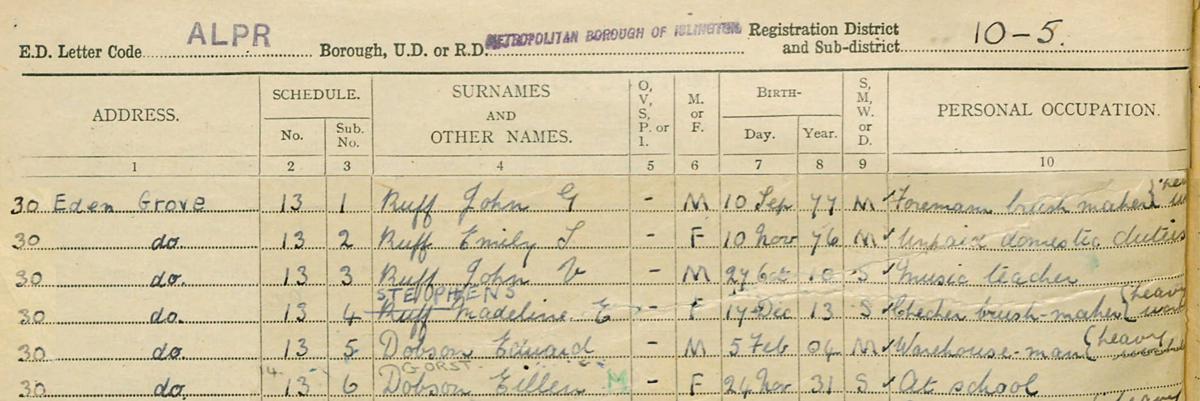 E.D. Letter Code ALPR Borough, U.D. or R.D. METROPOLITAN BOROUGH OF ISLINGTON Registration District and Sub-district 10-5.
ADDRESS. SCHEDULE. No. Sub. No. SURNAMES AND OTHER NAMES. O, V, S, P. or I. M. or F. BIRTH- Day. Year. S, M, W. or D. PERSONAL OCCUPATION.
1 2 3 4 5 6 7 8 9 10
30 Eden Grove 13 1 Ruff John G - M 10 Sep 77 M Foreman brush maker
30 do. 13 2 Ruff Emily L - F 10 Nov 76 M Unpaid domestic duties
30 do. 13 3 Ruff John V - M 27 Oct 10 S Music teacher
STEOPHENS
30 do. 13 4 Ruff Madeline E - F 17 Dec 13 S Checker brush-maker (heavy
30 do. 13 5 Dobson Edward - M 5 Feb 04 M Warehouse-man (heavy
GORST
30 do. 13 6 Dobson Eileen M - F 24 Nov 31 S At school